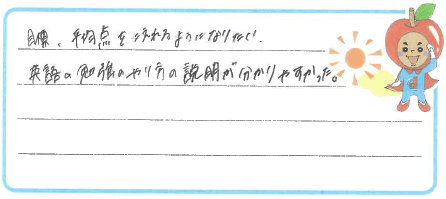 目標、平均点をとれるようになりたい.
英語の勉強のやり方の説明が分かりやすかった。